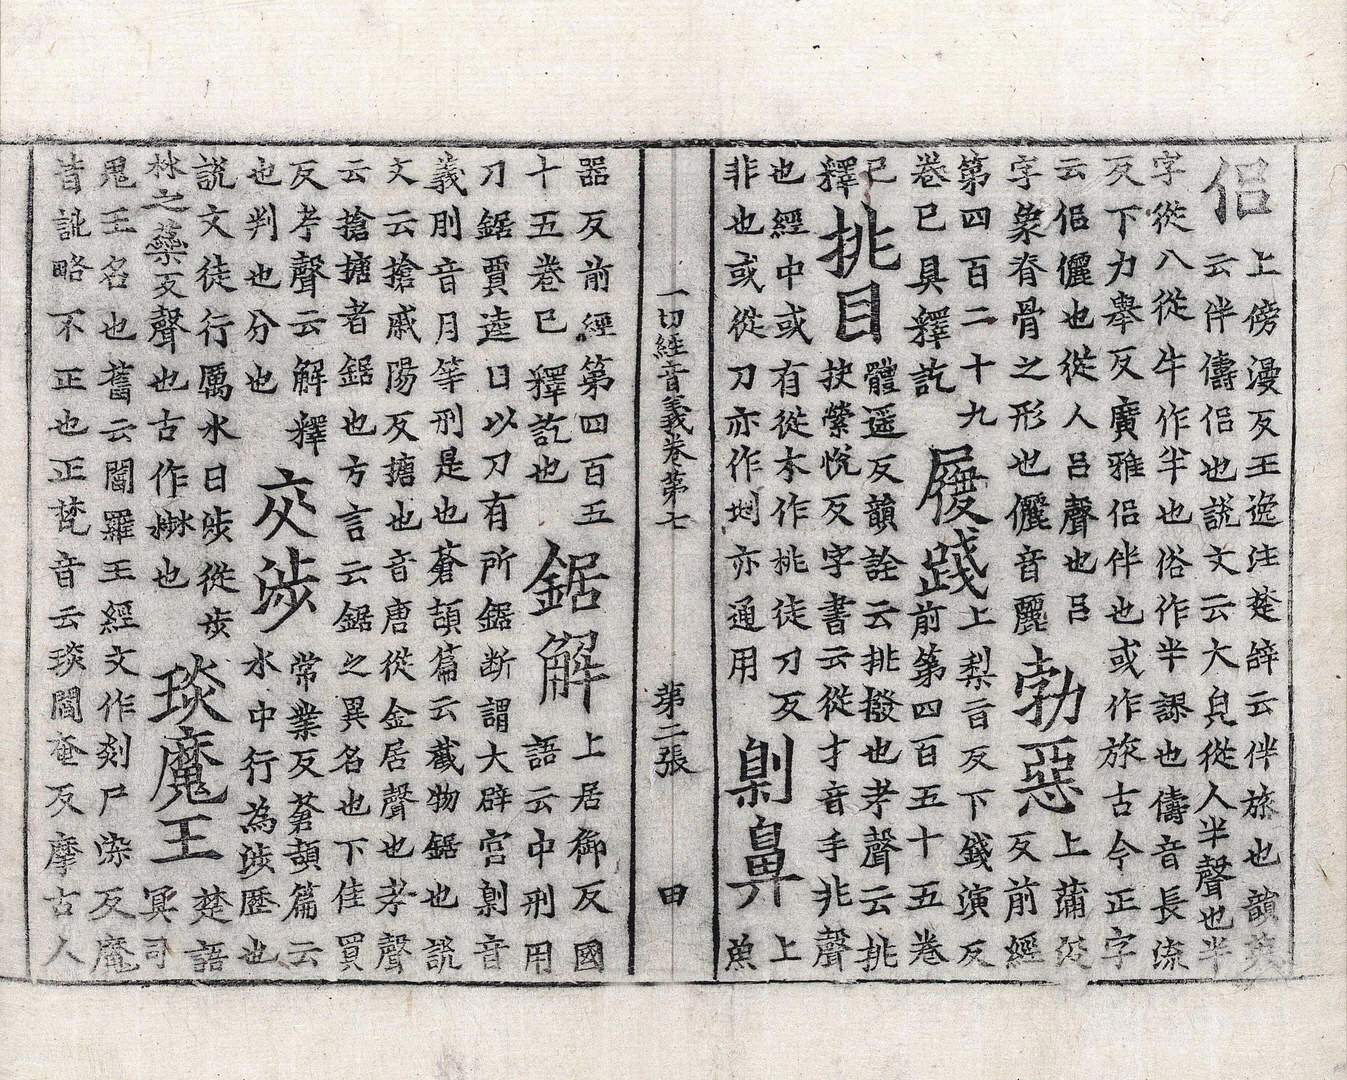 侶
上傍漫反王逸注楚辭云伴旅也韻英
云伴儔侶也說文云大皃從人半聲也半
字從八從牛作半也俗作半課也儔音長流
反下力舉反廣雅侶伴也或作旅古今正字
云侶儷也從人呂聲也呂
字象脊骨之形也儷音麗
勃惡
上蒲没
反前經
第四百二十九
卷已具釋訖
履踐
上梨㫖反下錢演反
前第四百五十五卷
已
釋
挑目
體遥反韻詮云挑撥也考聲云挑
抉縈悅反字書云從才音手兆聲
也經中或有從木作桃徒刀反
非也或從刀亦作㓟亦通用
劓鼻
上
魚
一切經音義卷第七 第二張 甲
器反前經第四百五
十五卷已釋訖也
鋸解
上居御反國
語云中刑用
刀鋸賈逵曰以刀有所鋸断謂大辟宫劓音
義刖音月等刑是也蒼頡篇云截物鋸也說
文云搶戚陽反搪也音唐從金居聲也考聲
云搶搪者鋸也方言云鋸之異名也下佳買
反考聲云解釋
也判也分也
交涉
常業反蒼頡篇云
水中行為涉歷也
說文徒行厲水曰涉從步
𣏟之蘂反聲也古作㴇也
琰魔王
楚語
冥司
鬼王名也舊云閻羅王經文作剡尸染反魔
皆訛略不正也正梵音云琰閻奄反摩古人